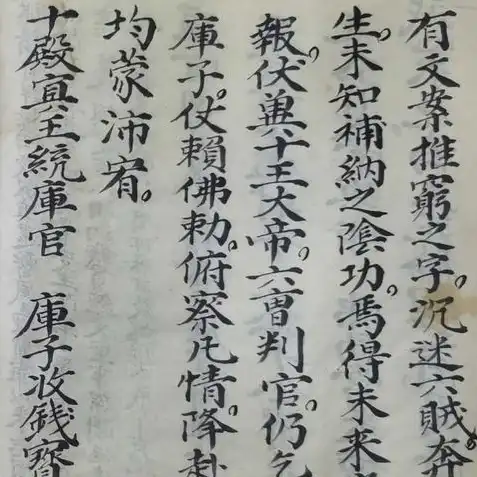 有文案推窮之字。沉迷六賊。奔
生。未知補納之陰功。焉得未來
報。伏兾十王大帝。六曺判官。仍乞
庫子。仗賴佛勅。俯察凡情。降赴
均蒙沛宥。
十殿㝠王統庫官　庫子收錢寳